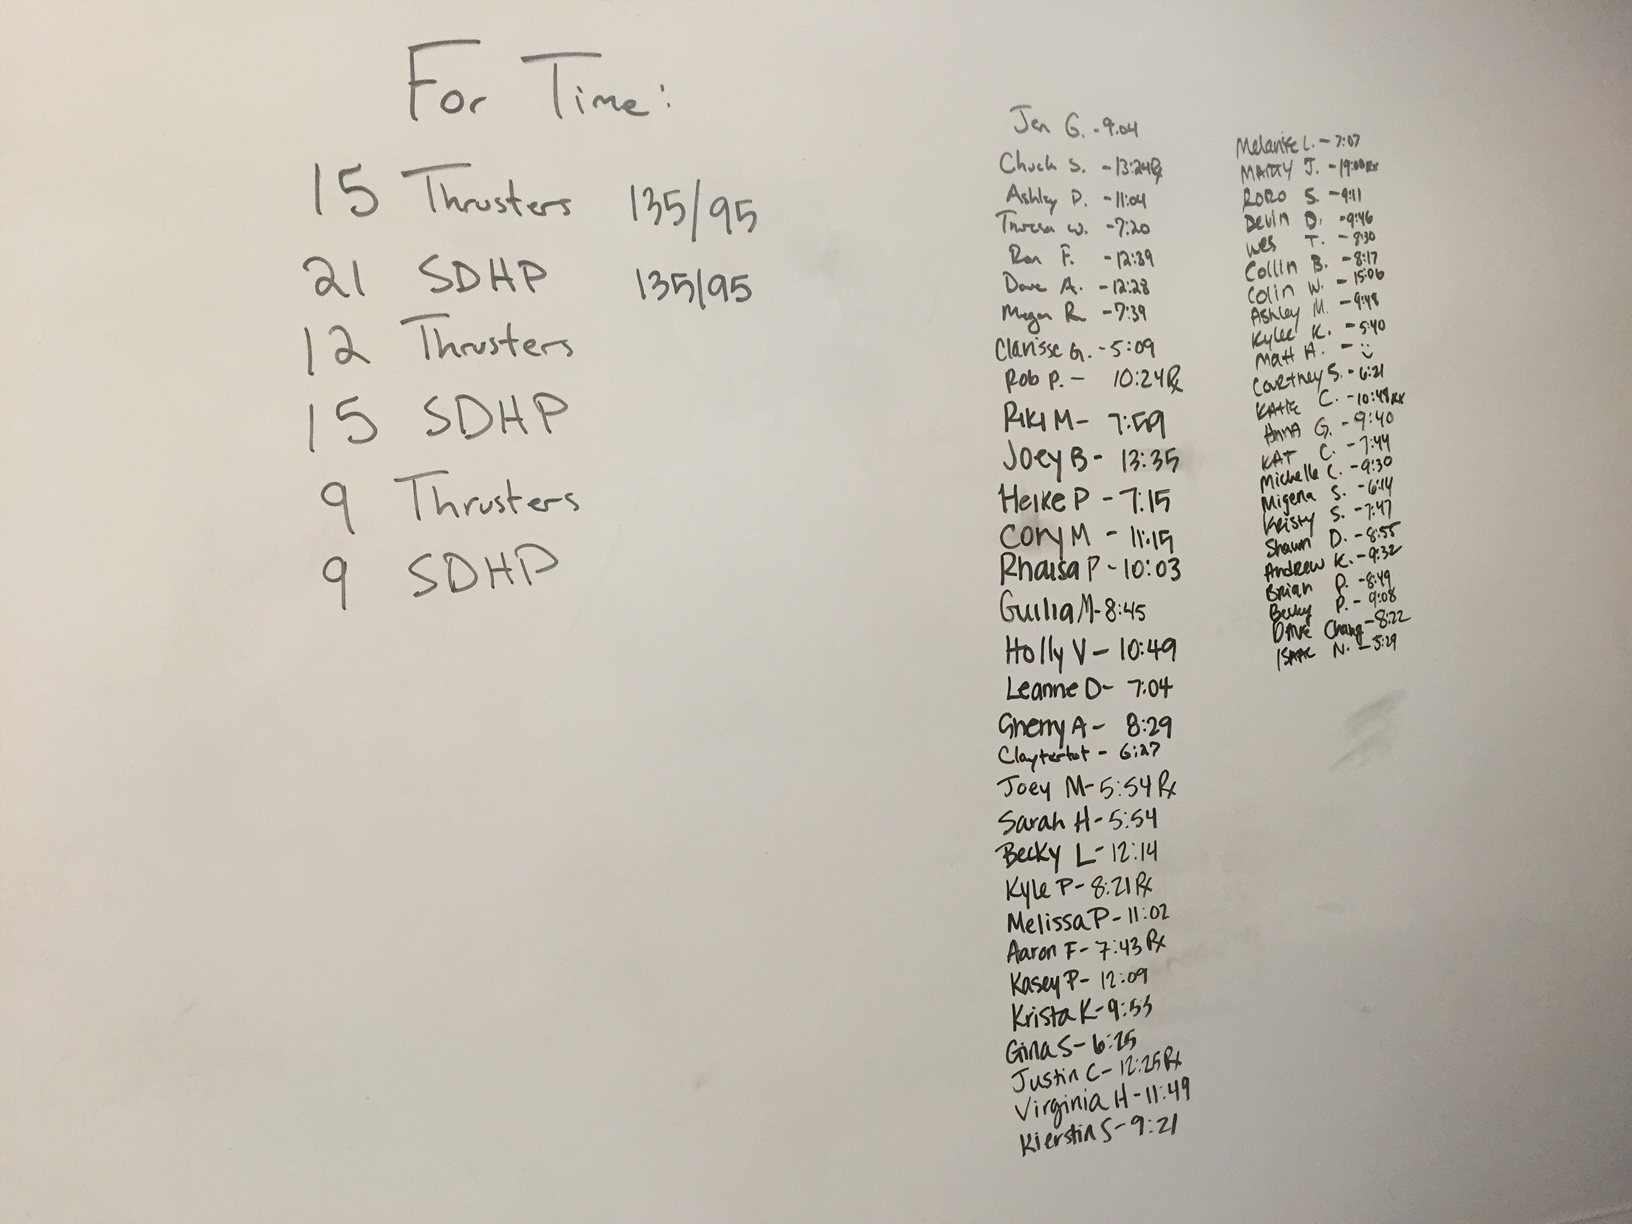 For Time:
15 Thrusters 135/95
21 SDHP 135/95
12 Thrusters
15 SDHP
9 Thrusters
9 SDHP
Jen G. - 9:04
Chuck S. - 13:24Rx
Ashley D. - 11:04
Theresa W. - 7:20
Ron F. - 12:39
Dave A. - 12:28
Megan R. - 7:39
Clarisse G. - 5:09
Rob P. - 10:24Rx
Riki M - 7:59
Joey B - 13:35
Heike P - 7:15
Cory M - 11:15
Rhaisa P - 10:03
Guilia M - 8:45
Holly V - 10:49
Leanne D - 7:04
Sherry A - 8:29
Claytertot - 6:27
Joey M - 5:54 Rx
Sarah H - 5:54
Becky L - 12:14
Kyle P - 8:21 Rx
Melissa P - 11:02
Aaron F - 7:43 Rx
Kasey P - 12:09
Krista K - 9:53
Gina S - 6:25
Justin C - 12:25 Rx
Virginia H - 11:49
Kierstin S - 9:21
Melanie L. - 7:07
MARTY J. - 19:00 Rx
RORO S. - 9:11
Devin D. - 9:46
Wes T. - 8:30
Collin B. - 8:17
Colin W. - 15:06
Ashley M. - 9:48
Kylee K. - 5:40
Matt A. - :)
Courtney S. - 6:21
Katie C. - 10:48 Rx
Anna G. - 9:40
KAT C. - 7:44
Michelle C. - 9:30
Migena S. - 6:14
Kristy S. - 7:47
Shawn D. - 8:55
Andrew K. - 9:32
Brian P. - 8:49
Becky P. - 9:08
Dave Chang - 8:22
ISAAC N. - 5:29